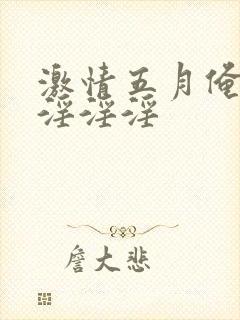 激情五月俺
淫淫淫
詹大悲